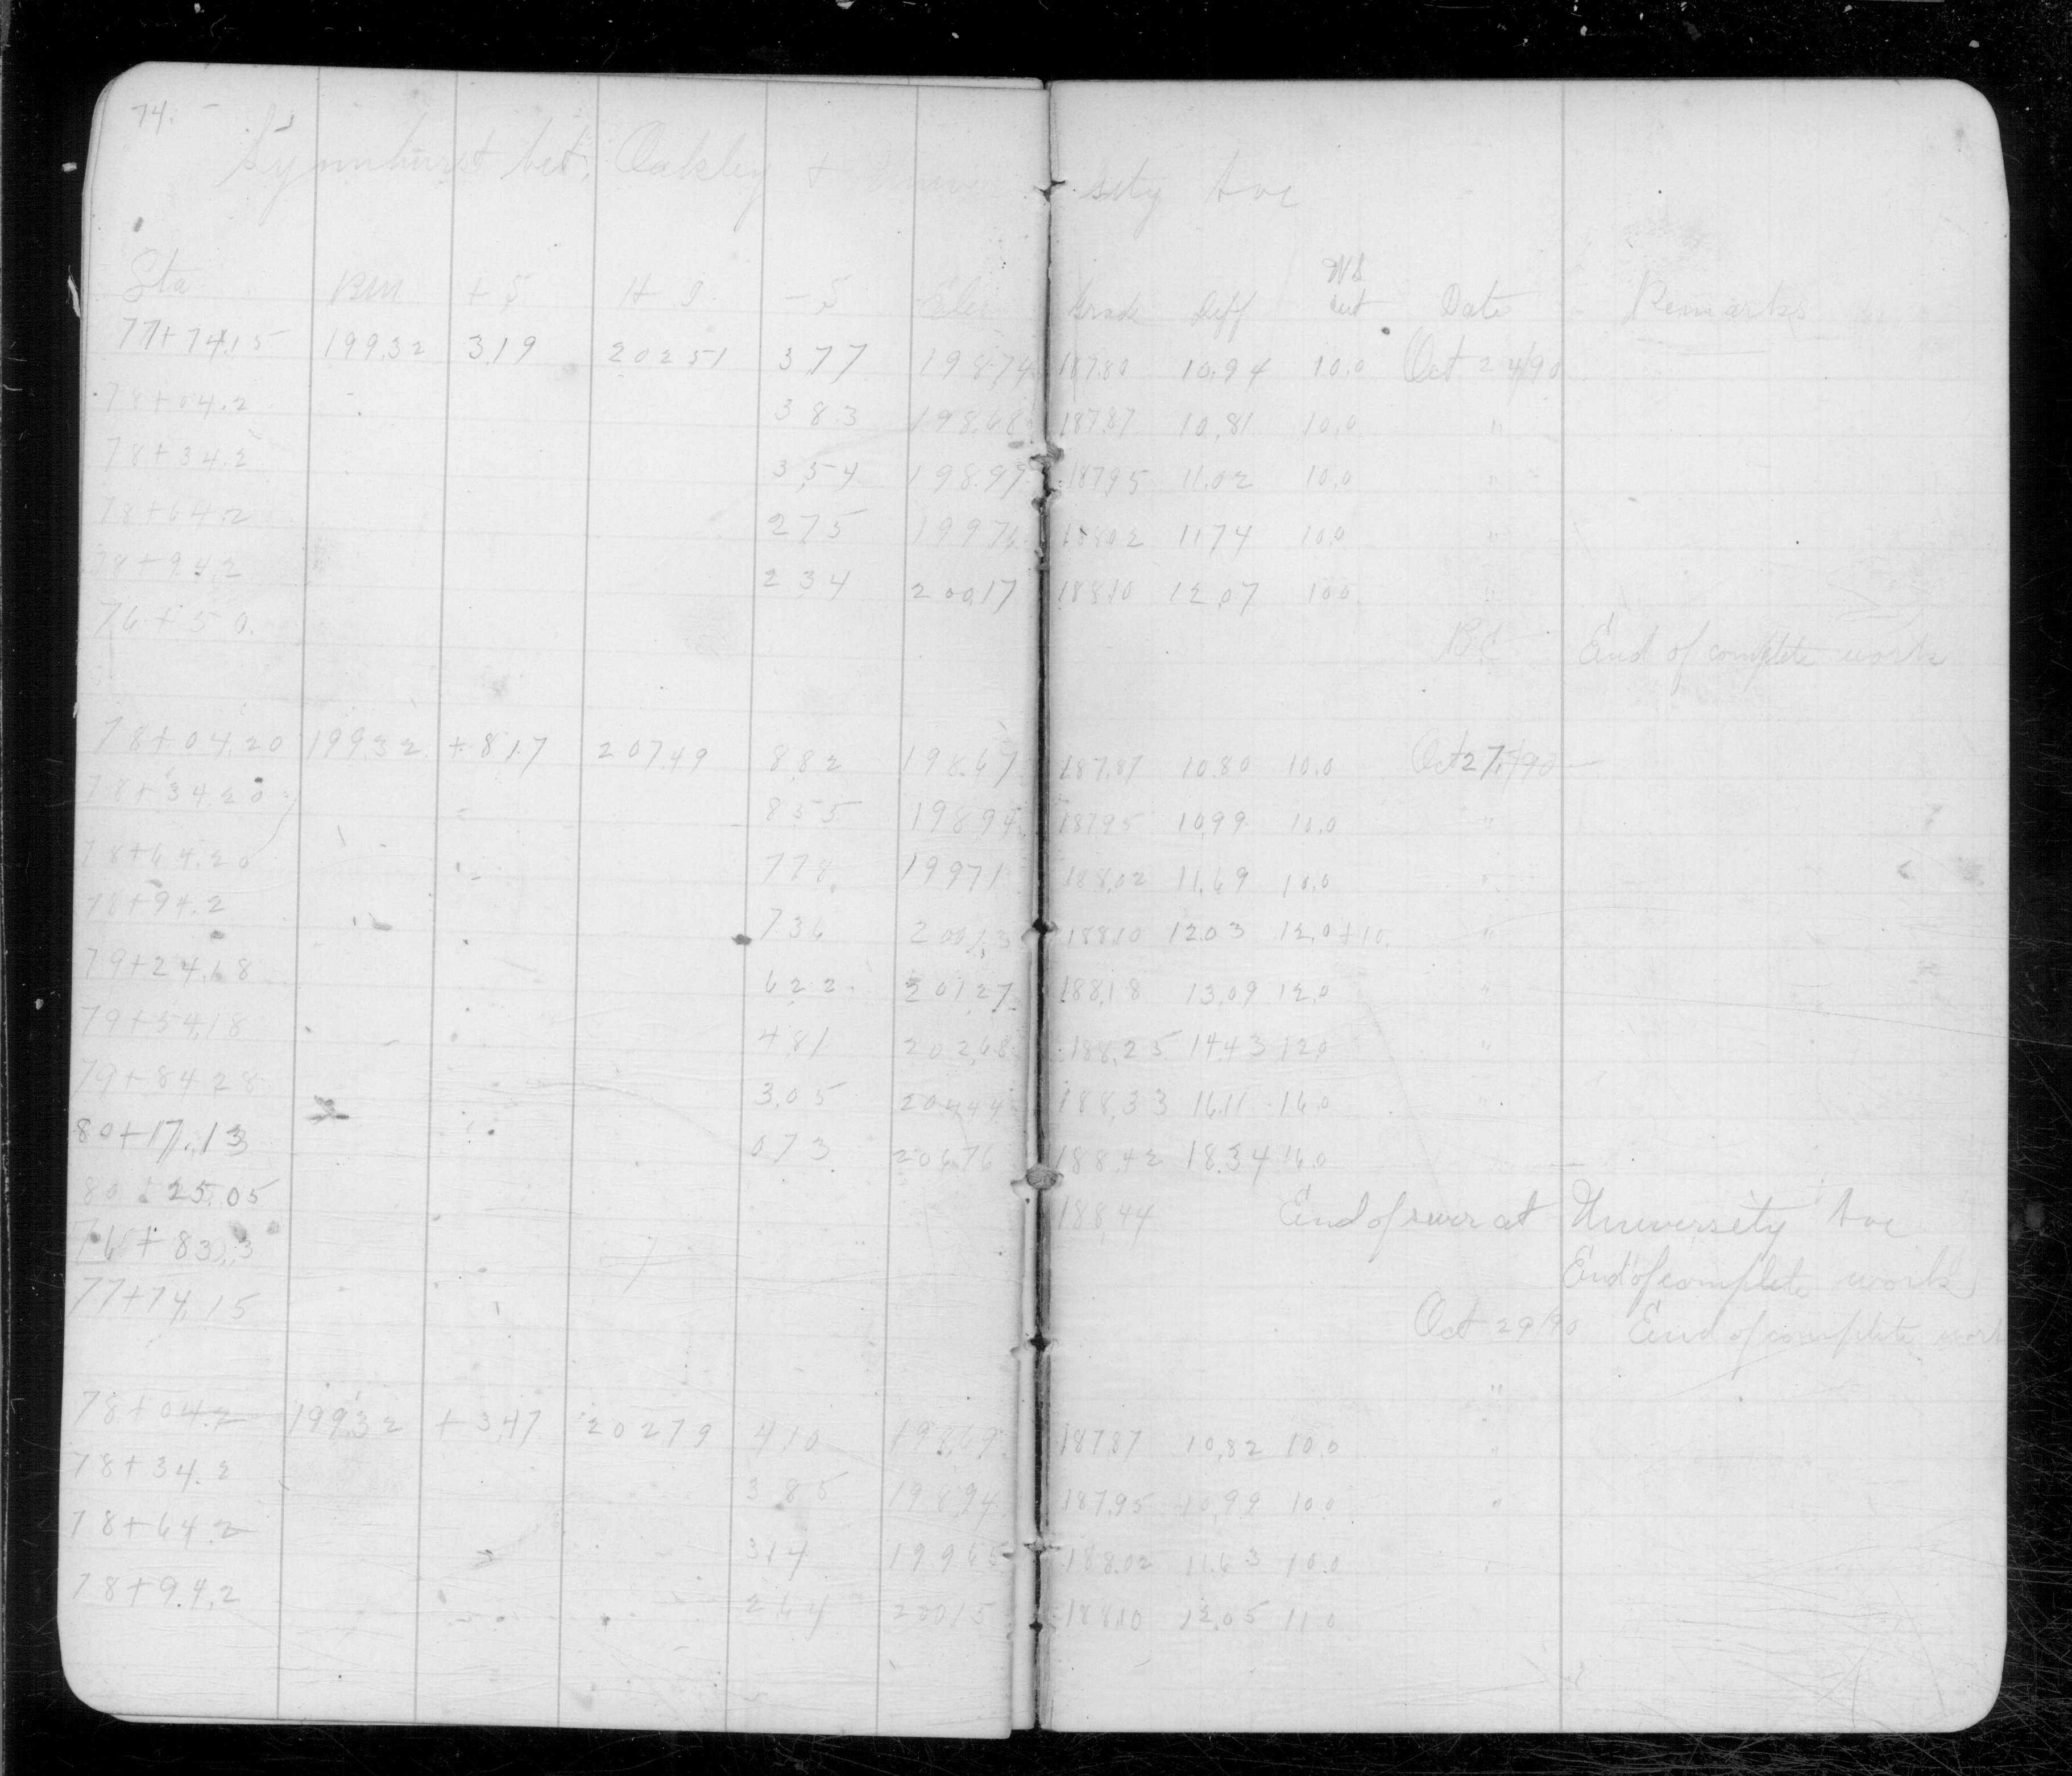 74.
Lynnhurst bet. Oakley + University Ave
Sta BM + S H I - S Elev Grade Diff WS cut Date Remarks
77+74.15 199.32 3.19 202.51 3.77 198.74 187.80 10.94 10.0 Oct 24/90
78+04.2 3.83 198.68 187.87 10.81 10.0 "
78+34.2 3.54 198.97 187.95 11.02 10.0 "
78+64.2 2.75 199.76 188.02 11.74 10.0 "
78+94.2 2.34 200.17 188.10 12.07 10.0 "
76+50. End of complete work
78+04.20 199.32 +8.17 207.49 8.82 198.67 187.87 10.80 10.0 Oct 27/90
78+34.20 8.55 198.94 187.95 10.99 10.0 "
78+64.20 7.78 199.71 188.02 11.69 10.0 "
78+94.2 7.36 200.13 188.10 12.03 12.0+10. "
79+24.18 6.22 201.27 188.18 13.09 12.0 "
79+54.18 4.81 202.68 188.25 14.43 12.0 "
79+84.28 3.05 204.44 188.33 16.11 16.0 "
80+17.13 0.73 206.76 188.42 18.34 16.0
80+25.05 188.44 End of sewer at University Ave
76+83.3 End of complete work
77+74.15 Oct 29/90 End of complete work
"
78+04.2 199.32 +3.47 202.79 4.10 198.69 187.87 10.82 10.0 "
78+34.2 3.85 198.94 187.95 10.99 10.0 "
78+64.2 3.14 199.65 188.02 11.63 10.0 "
78+94.2 2.64 200.15 188.10 12.05 11.0